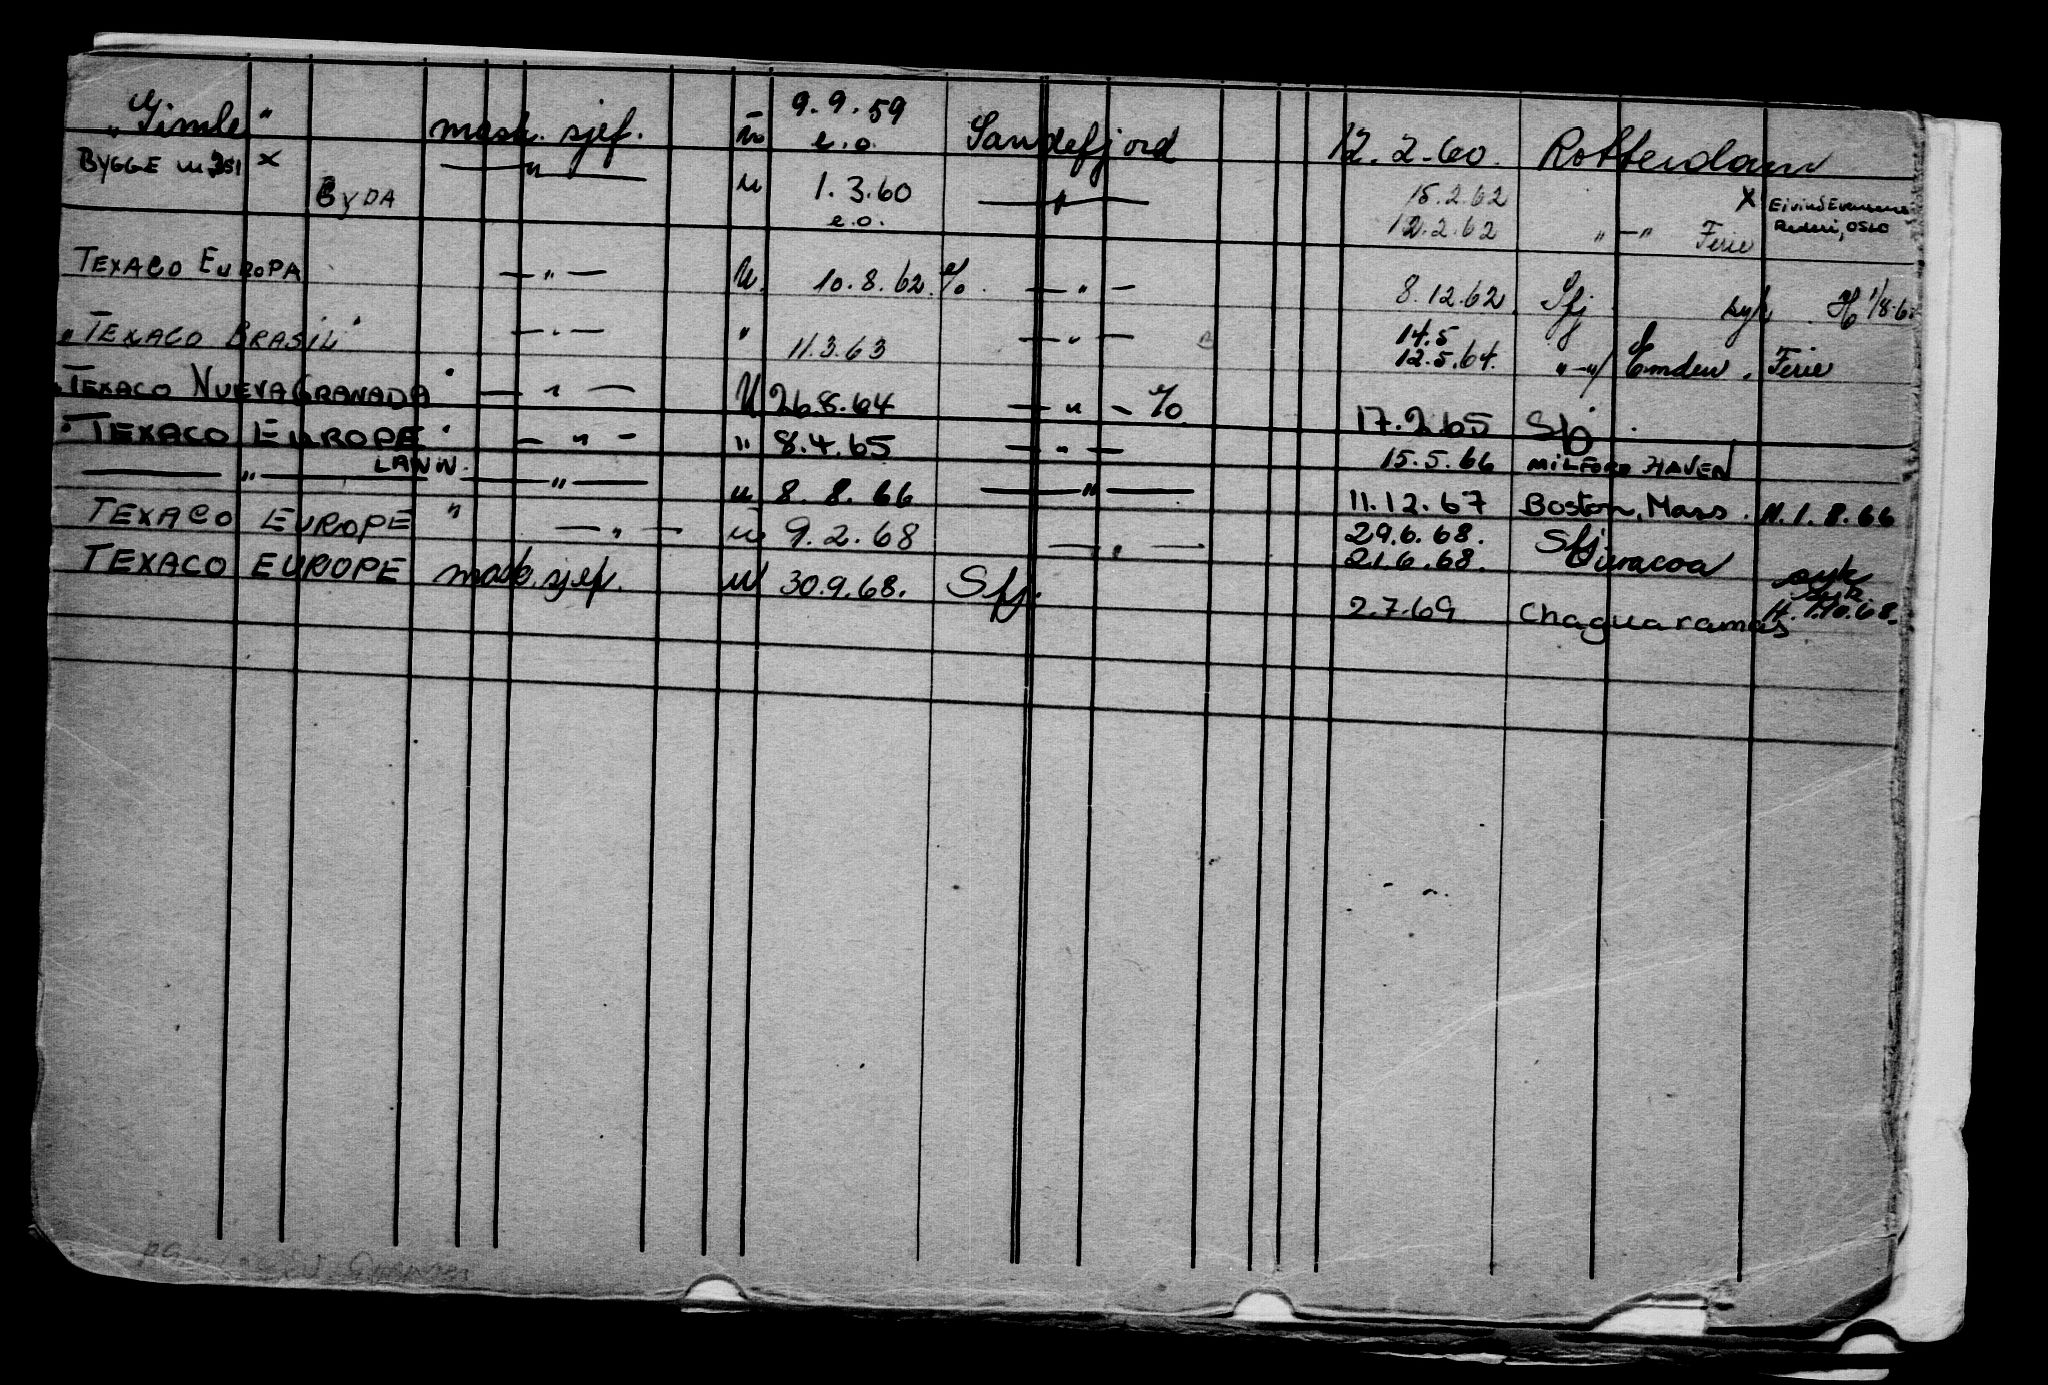 9.9.59
"Gimle" mask. sjef. e.o. Sandefjord 12.2.60. Rotterdam
BYGGE nr 351 x — " — u 1.3.60 — " — 15.2.62 x Eivind Evensens
BYDA e.o. 12.2.62 " — " Ferie Rederi, OSLO
TEXACO EUROPA — " — u. 10.8.62. % — " — 8.12.62 Sfj syk. H 1/8-6
"TEXACO BRASIL" — " — " 11.3.63 — " — 14.5
12.5.64. " — "/ Emden. Ferie
"TEXACO NUEVA GRANADA" — " — U 26.8.64 — " — % 17.2.65 Sfj.
"TEXACO EUROPE" — " — " 8.4.65 — " — 15.5.66 MILFORD HAVEN
— " — LANW. — " — u 8.8.66 — " — 11.12.67 Boston, Mass. H. 1.8.66
TEXACO EUROPE " — " — u 9.2.68 — " — 29.6.68. Sfj
21.6.68. Curacoa syk
TEXACO EUROPE mask. sjef. u 30.9.68. Sfj. 2.7.69. Chaguaramas syk. H. 1.10.68.